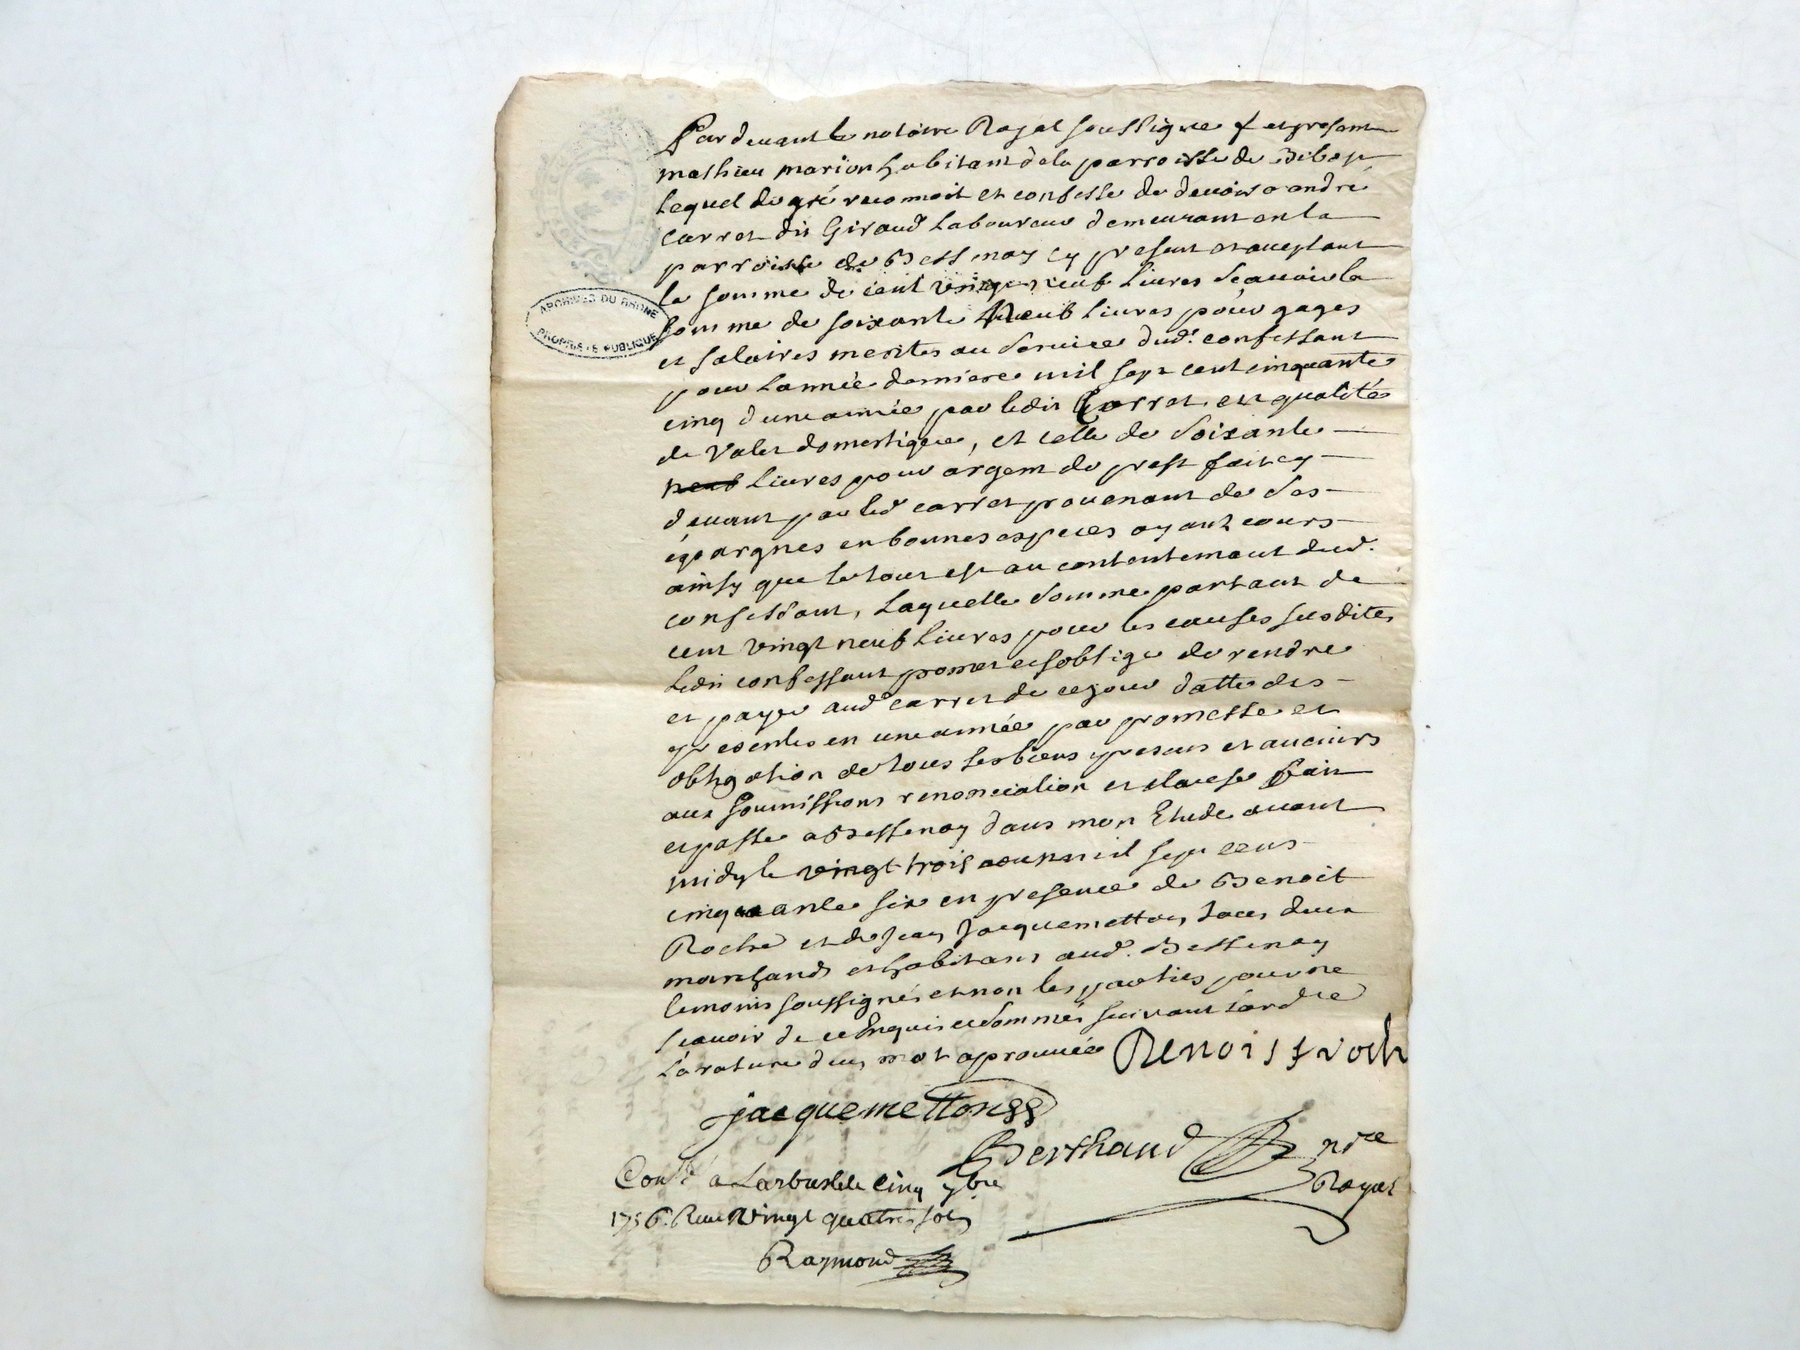 Pardevant le notaire Royal soussigne fut present
mathieu marion habitant de la parroisse de Bibost
Lequel de gré reconnoit et confesse de devoir a andré
Carret dit Giraud Laboureur demeurant en la
parroisse de Bessenay cy present et acceptant
la somme de cent vingt neuf livres Scavoir la
somme de soixante Neuf livres pour gages
et salaires merites au Service dud. confessant
pour L'année derniere mil sept cent cinquante
cinq d'une année par ledit Carret en qualité
de valet domestique, et celle de Soixante
neuf livres pour argent de prest fait cy
devant par led carret provenant de Ses
épargnes en bonnes especes ayant cours
ainsy que le tout est au contentement dud.
confessant, Laquelle Somme partant de
cent vingt neuf livres pour les causes susdites
Ledit confessant promet et soblige de rendre
et payer aud carret de ce jour datte des
presentes en une année par promesse et
obligation de tous ses biens presens et avenirs
aux soumissions renonciation et clause fait
et passé a Bessenay dans mon Etude avant
midy le vingt trois aoust mil sept cens
cinquante six en presence de Benoit
Roche et de Jean Jacquemetton tous deux
marchands et habitans aud. Bessenay
temoins soussignés et non les parties pour ne
Scavoir de ce Enquis et Sommés suivant L'ordre
La rature d'un mot aprouvée Benoist roch
jacquemetton
Berthaud nre
Royal
Conlé a Larbresle le cinq 7bre
1756. Receu vingt quatre sols
Raymond
ARCHIVES DU RHONE
PROPRIETE PUBLIQUE